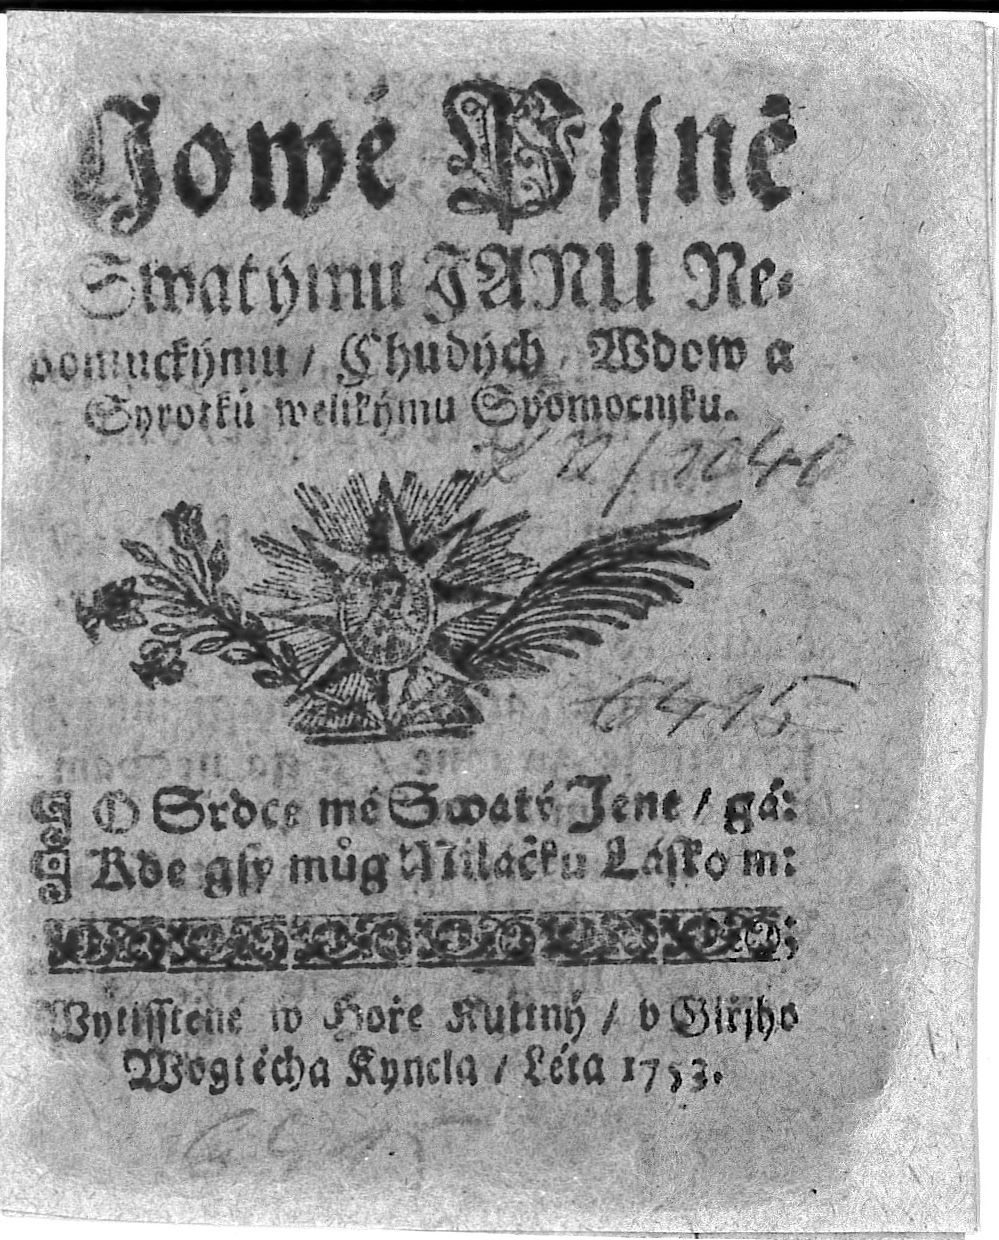 Nowé Pjsně
Swatýmu JANU Ne-
pomuckýmu / Chudých / Wdow a
Syrotků welikýmu Spomocnjku.
6415
O Srdce mé Swatý Jene / gá:
Kde gsy můg Miláčku Lásko m:
Wytisstěné w Hoře Kuttný / v Giřjho
Wogtěcha Kyncla / Léta 1753.